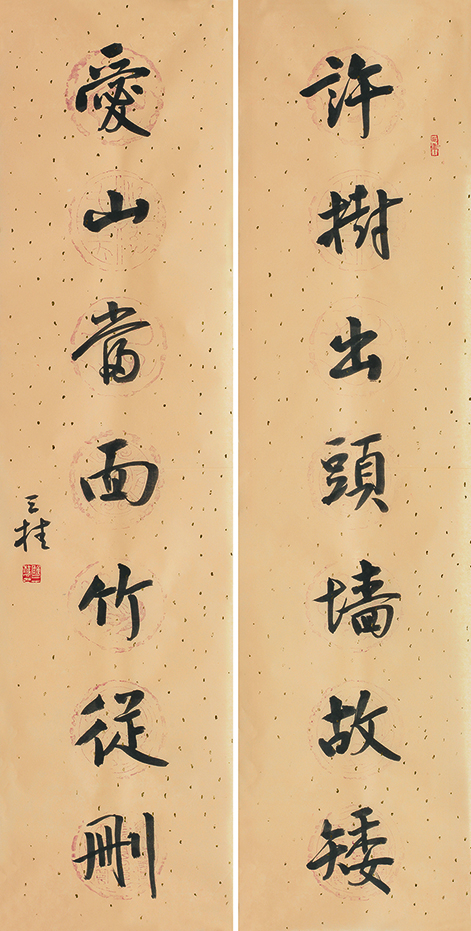 許樹出頭墻故矮
愛山當面竹從刪
三桂